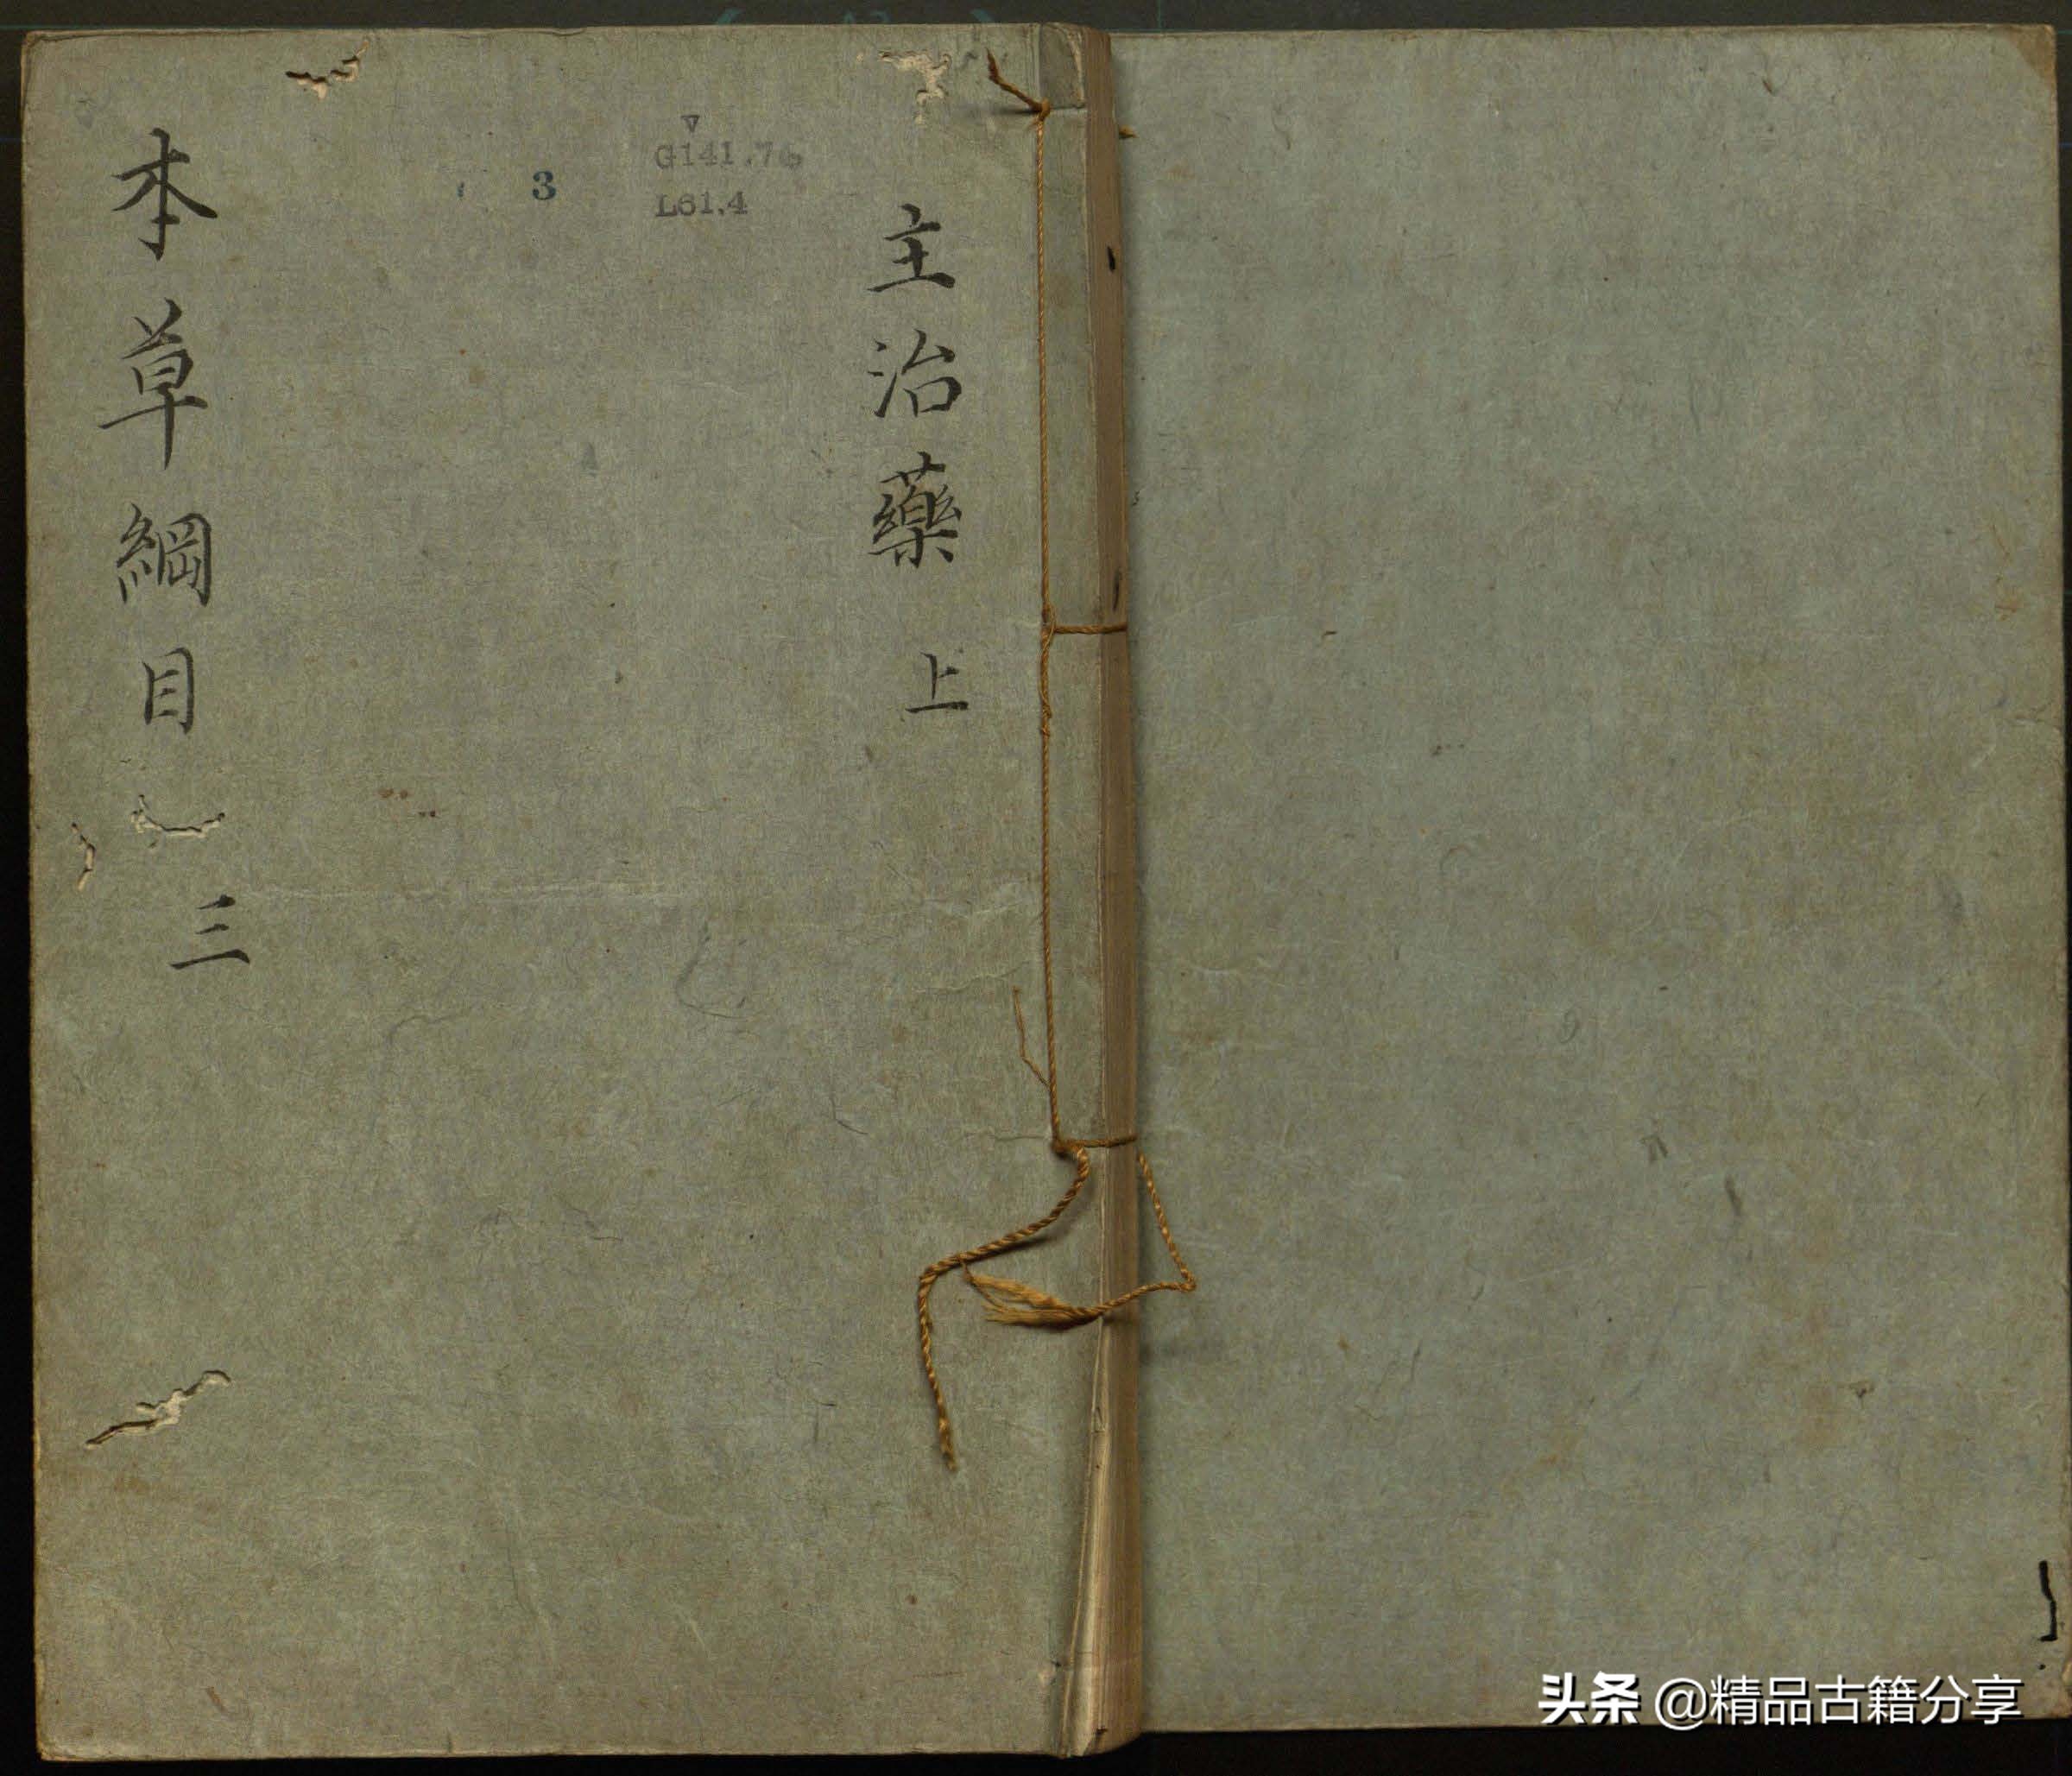 主治藥 上
3
G141.76
L61.4
本草綱目 三
头条 @精品古籍分享